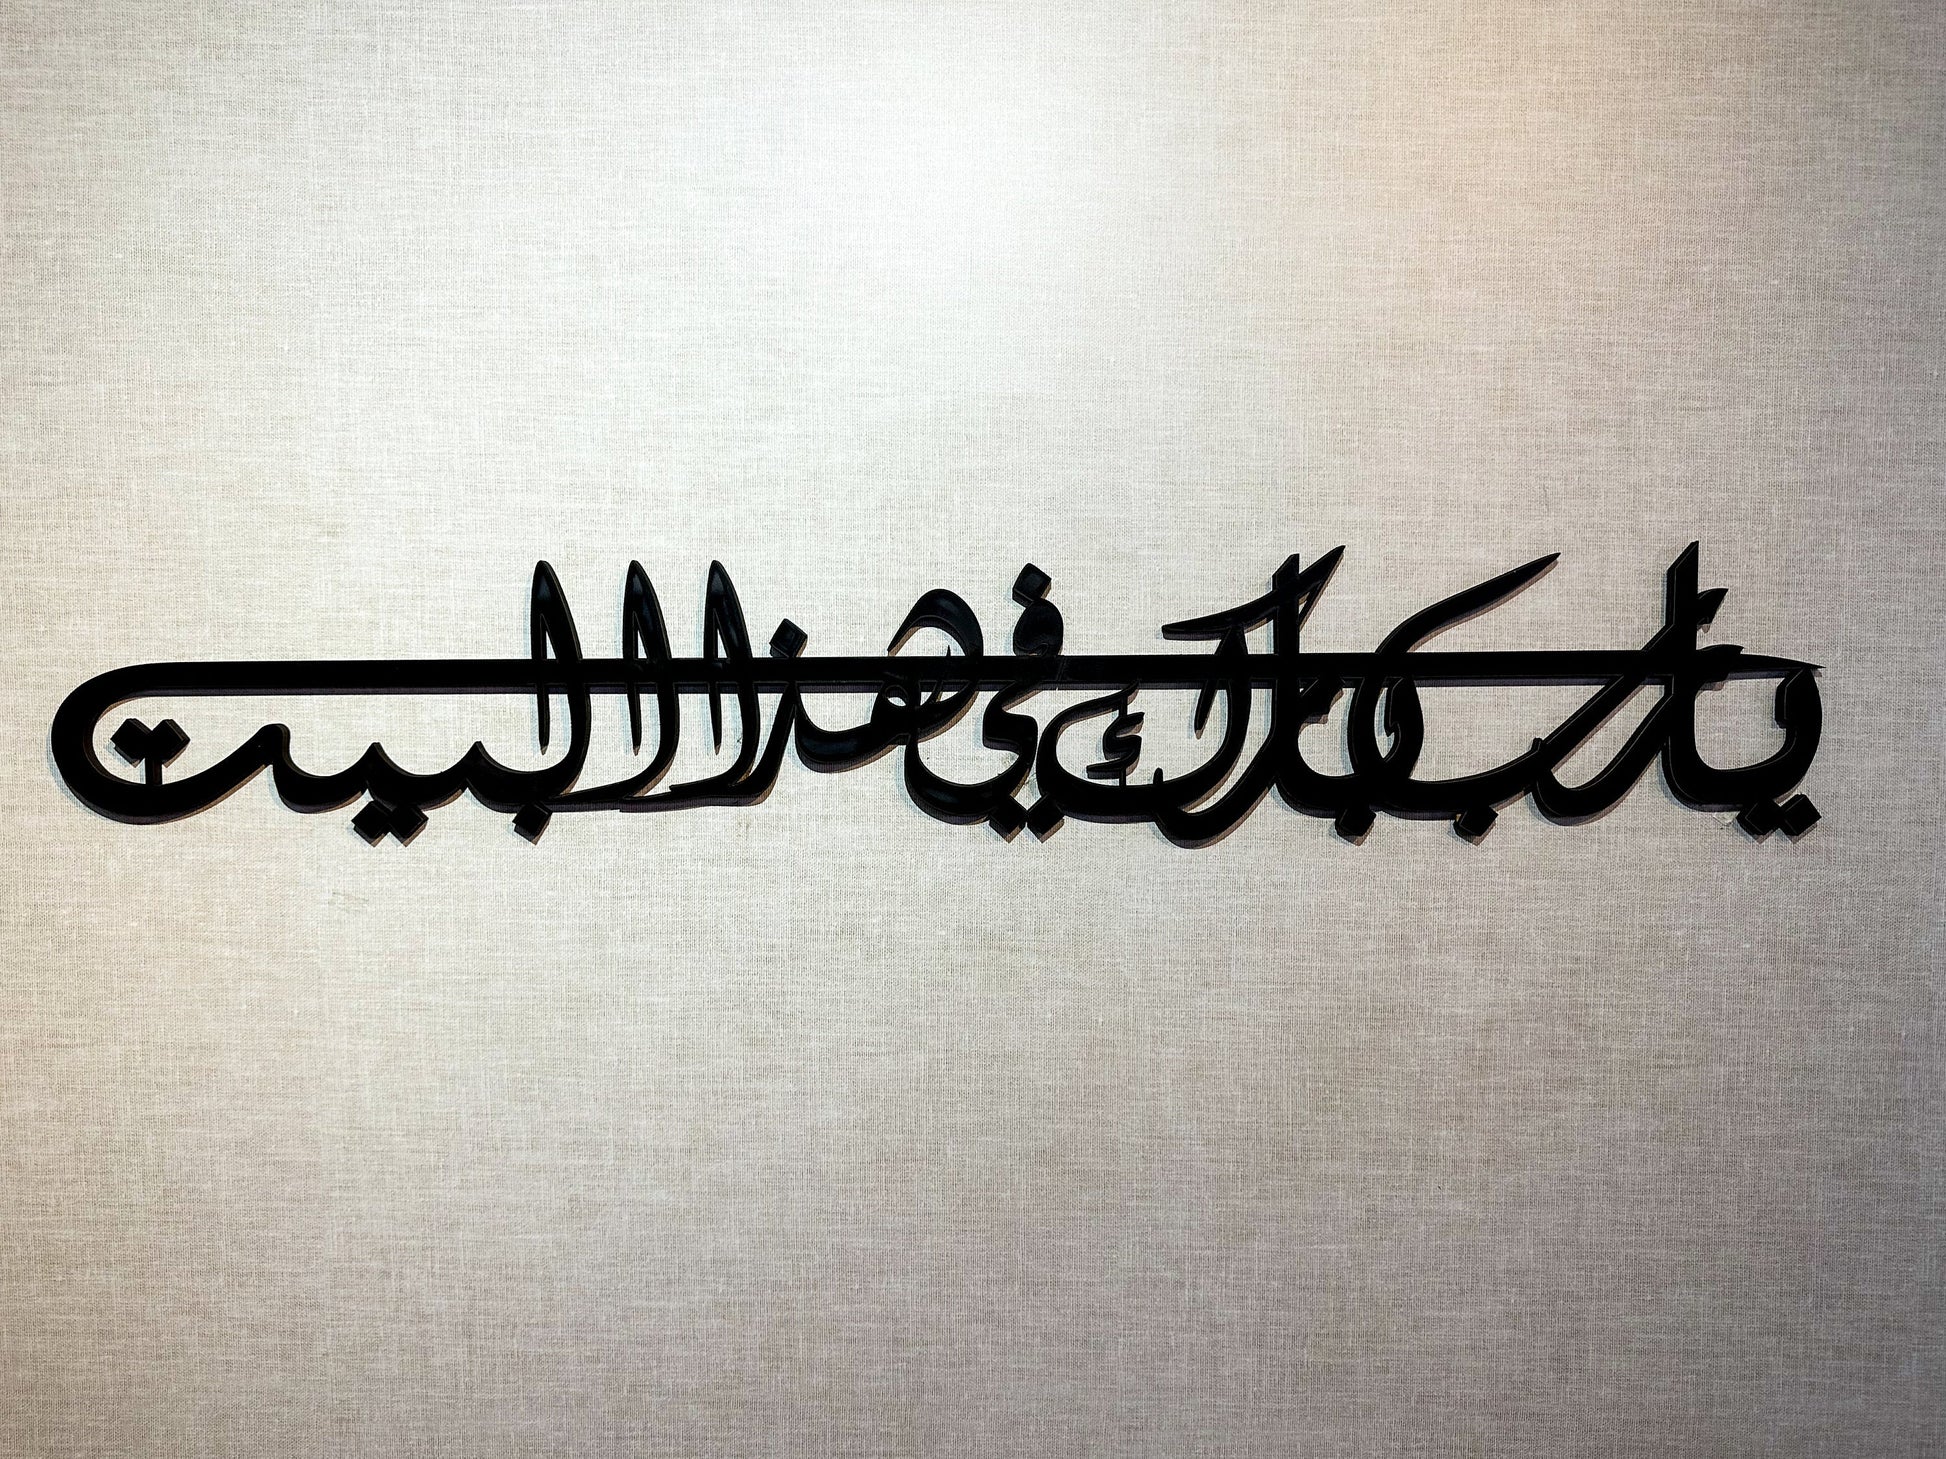 يا رب بارك في هذا البيت